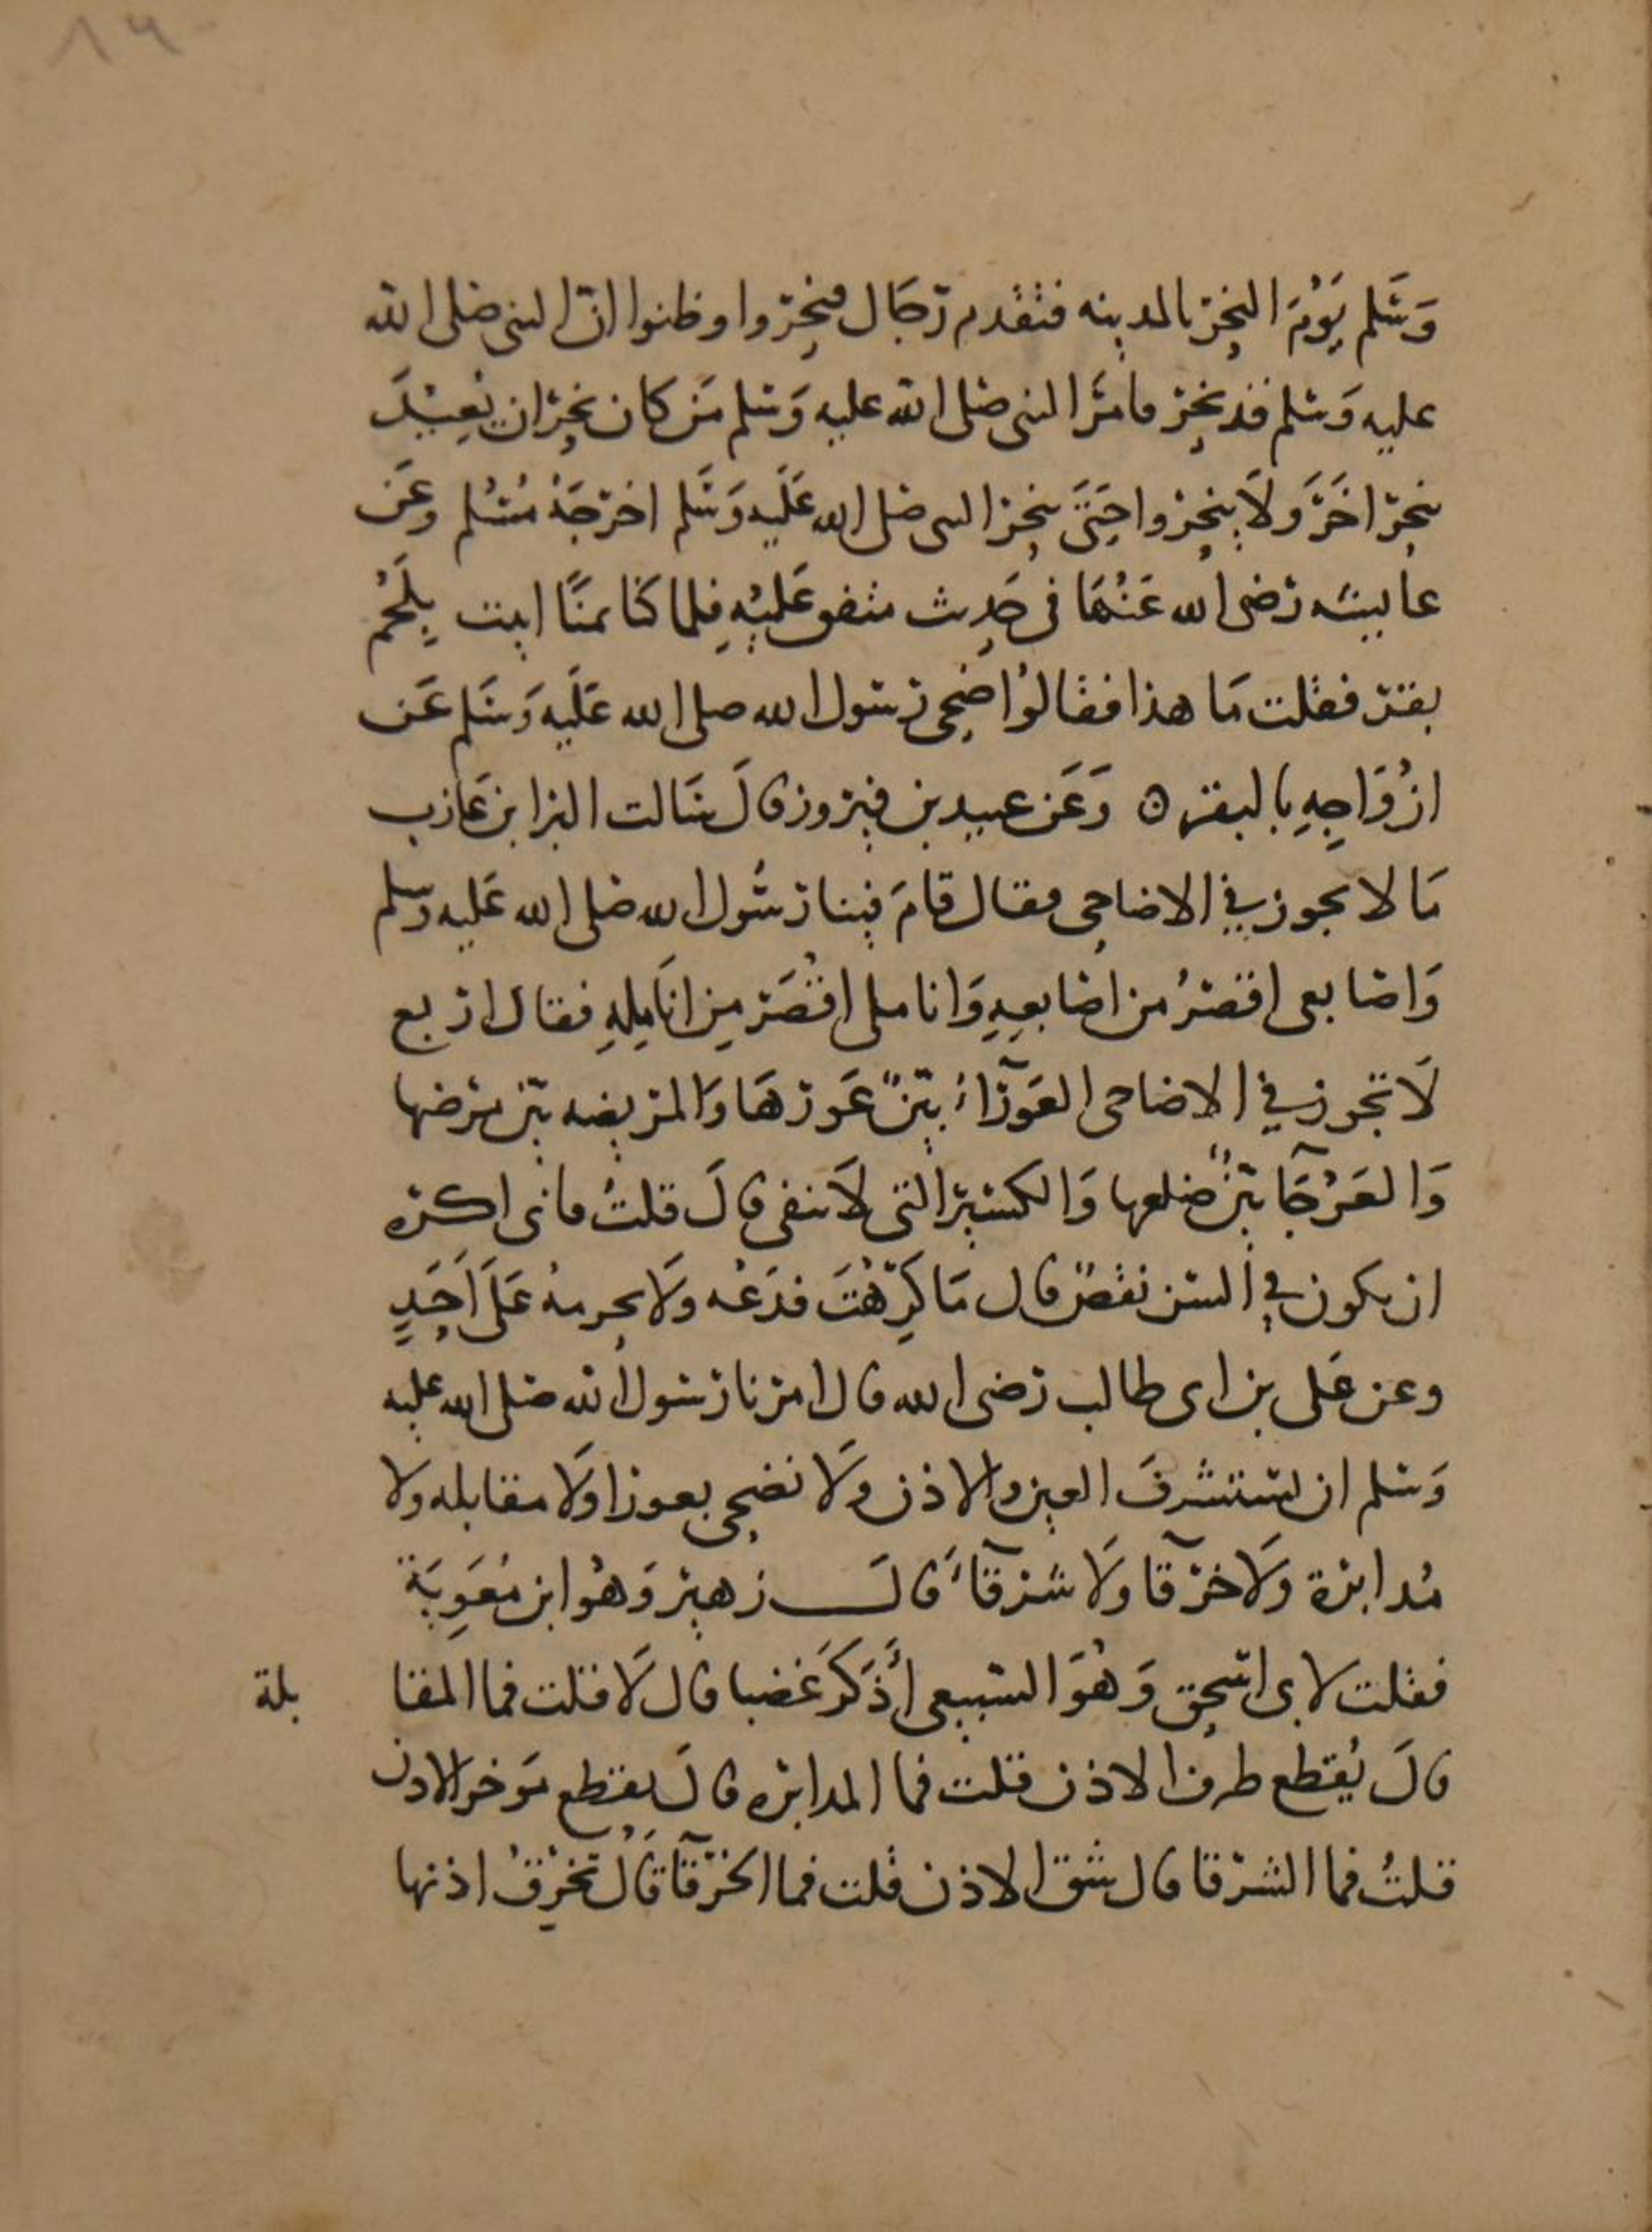 ٨٩
وَسَلم يَوْمَ النحر بالمدينه فتقدم رجَال فنحروا وظنوا انّ النبى صلى الله
عليه وَسلم قد نحر فامَرَ النبى صلى الله عليه وَسلم مَن كان نحر ان يُعِيْدَ
بنحر اخَرَ وَلَا ينحروا حَتىَ ينحر النبى صلى الله عَلَيه وَسَلم اخرجَهُ مُسْلم وعَن
عايشه رَضى الله عَنْهَا فى حَدِيث متفق عَليْهِ فلما كنا بمنًا اتيت بِلَحْم
بقر فقلت مَا هذا فقالوُا ضحى رَسول الله صلى الله عَلَيه وَسَلم عَن
ازْوَاجِهِ بالبقر ٥ وَعَن عبيد بن فيروز قالَ سَالت البرا بن عَازب
مَا لا يجوز في الاضاحى فقال قامَ فينا رَسُول الله صلى الله عَليه وسلم
وَاصابعى اقصرُ من اصَابعِهِ وَانا ملى اقْصَر مِن انَامِلِهِ فقال اربع
لَا تجوز في الاضاحى العَوْرَآءُ بيّنٌ عَورهَا وَالمريضه بيّن مرضها
وَالعَرْجَآ بيّنٌ ضلعها وَالكسير التى لَا تنقى قالَ قلتُ فانى اكره
ان يكون في السن نقصٌ قال مَا كَرِّهْتَ فدَعْه ولَا تحرمهُ عَلَى اَحَدٍ
وعن عَلى بن ابى طالب رَضى الله قال امرنا رَسول الله صلى الله عليه
وَسلم ان نستشرفَ العين والاذن ولَا نضحى بعورا ولَا مقابله ولا
مُدابرة ولَا خرْقآ ولَا شرقآءَ قالَ زهير وَهُو ابن مُعَوِيَة
فقلت لابى اسحق وَهُوَ السَبيعى أَذَكَرَ عَضبا قال لَا قلت فما المقا بلة
قالَ يُقطع طرف الاذن قلت فما المدابره قالَ يقطع مَوخر الاذن
قلتُ فما الشرْقا قال شق الاذن قلت فما الخرْقآ قالَ تخْرِقُ اذنها